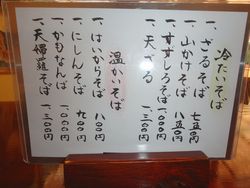 冷たいそば
一、ざるそば 七五〇円
一、山かけそば 八五〇円
一、すずしろそば 一、〇〇〇円
一、天ざる 一、三〇〇円
温かいそば
一、はいからそば 八〇〇円
一、にしんそば 九〇〇円
一、かもなんば 一、〇〇〇円
一、天婦羅そば 一、三〇〇円